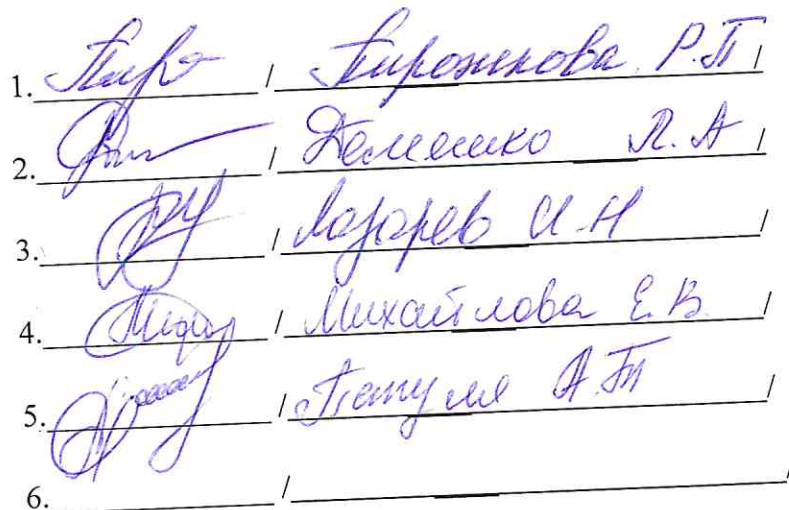 1. / Пирожкова Р.П /
2. / Демешко Л.А /
3. / Лазарев И.Н /
4. / Михайлова Е.В. /
5. / А.Т /
6. / /